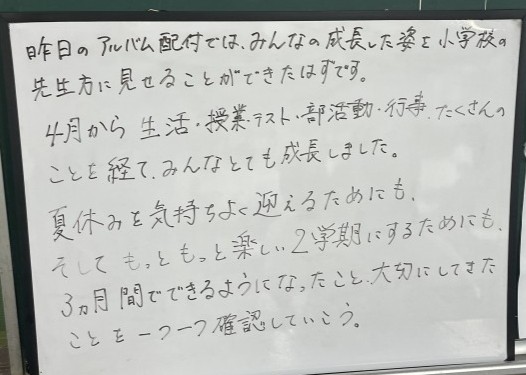 昨日のアルバム配付では、みんなの成長した姿を小学校の
先生方に見せることができたはずです。
4月から生活・授業・テスト・部活動・行事、たくさんの
ことを経て、みんなとても成長しました。
夏休みを気持ちよく迎えるためにも、
そしてもっともっと楽しい2学期にするためにも、
3ヵ月間でできるようになったこと、大切にしてきた
ことを一つ一つ確認していこう。